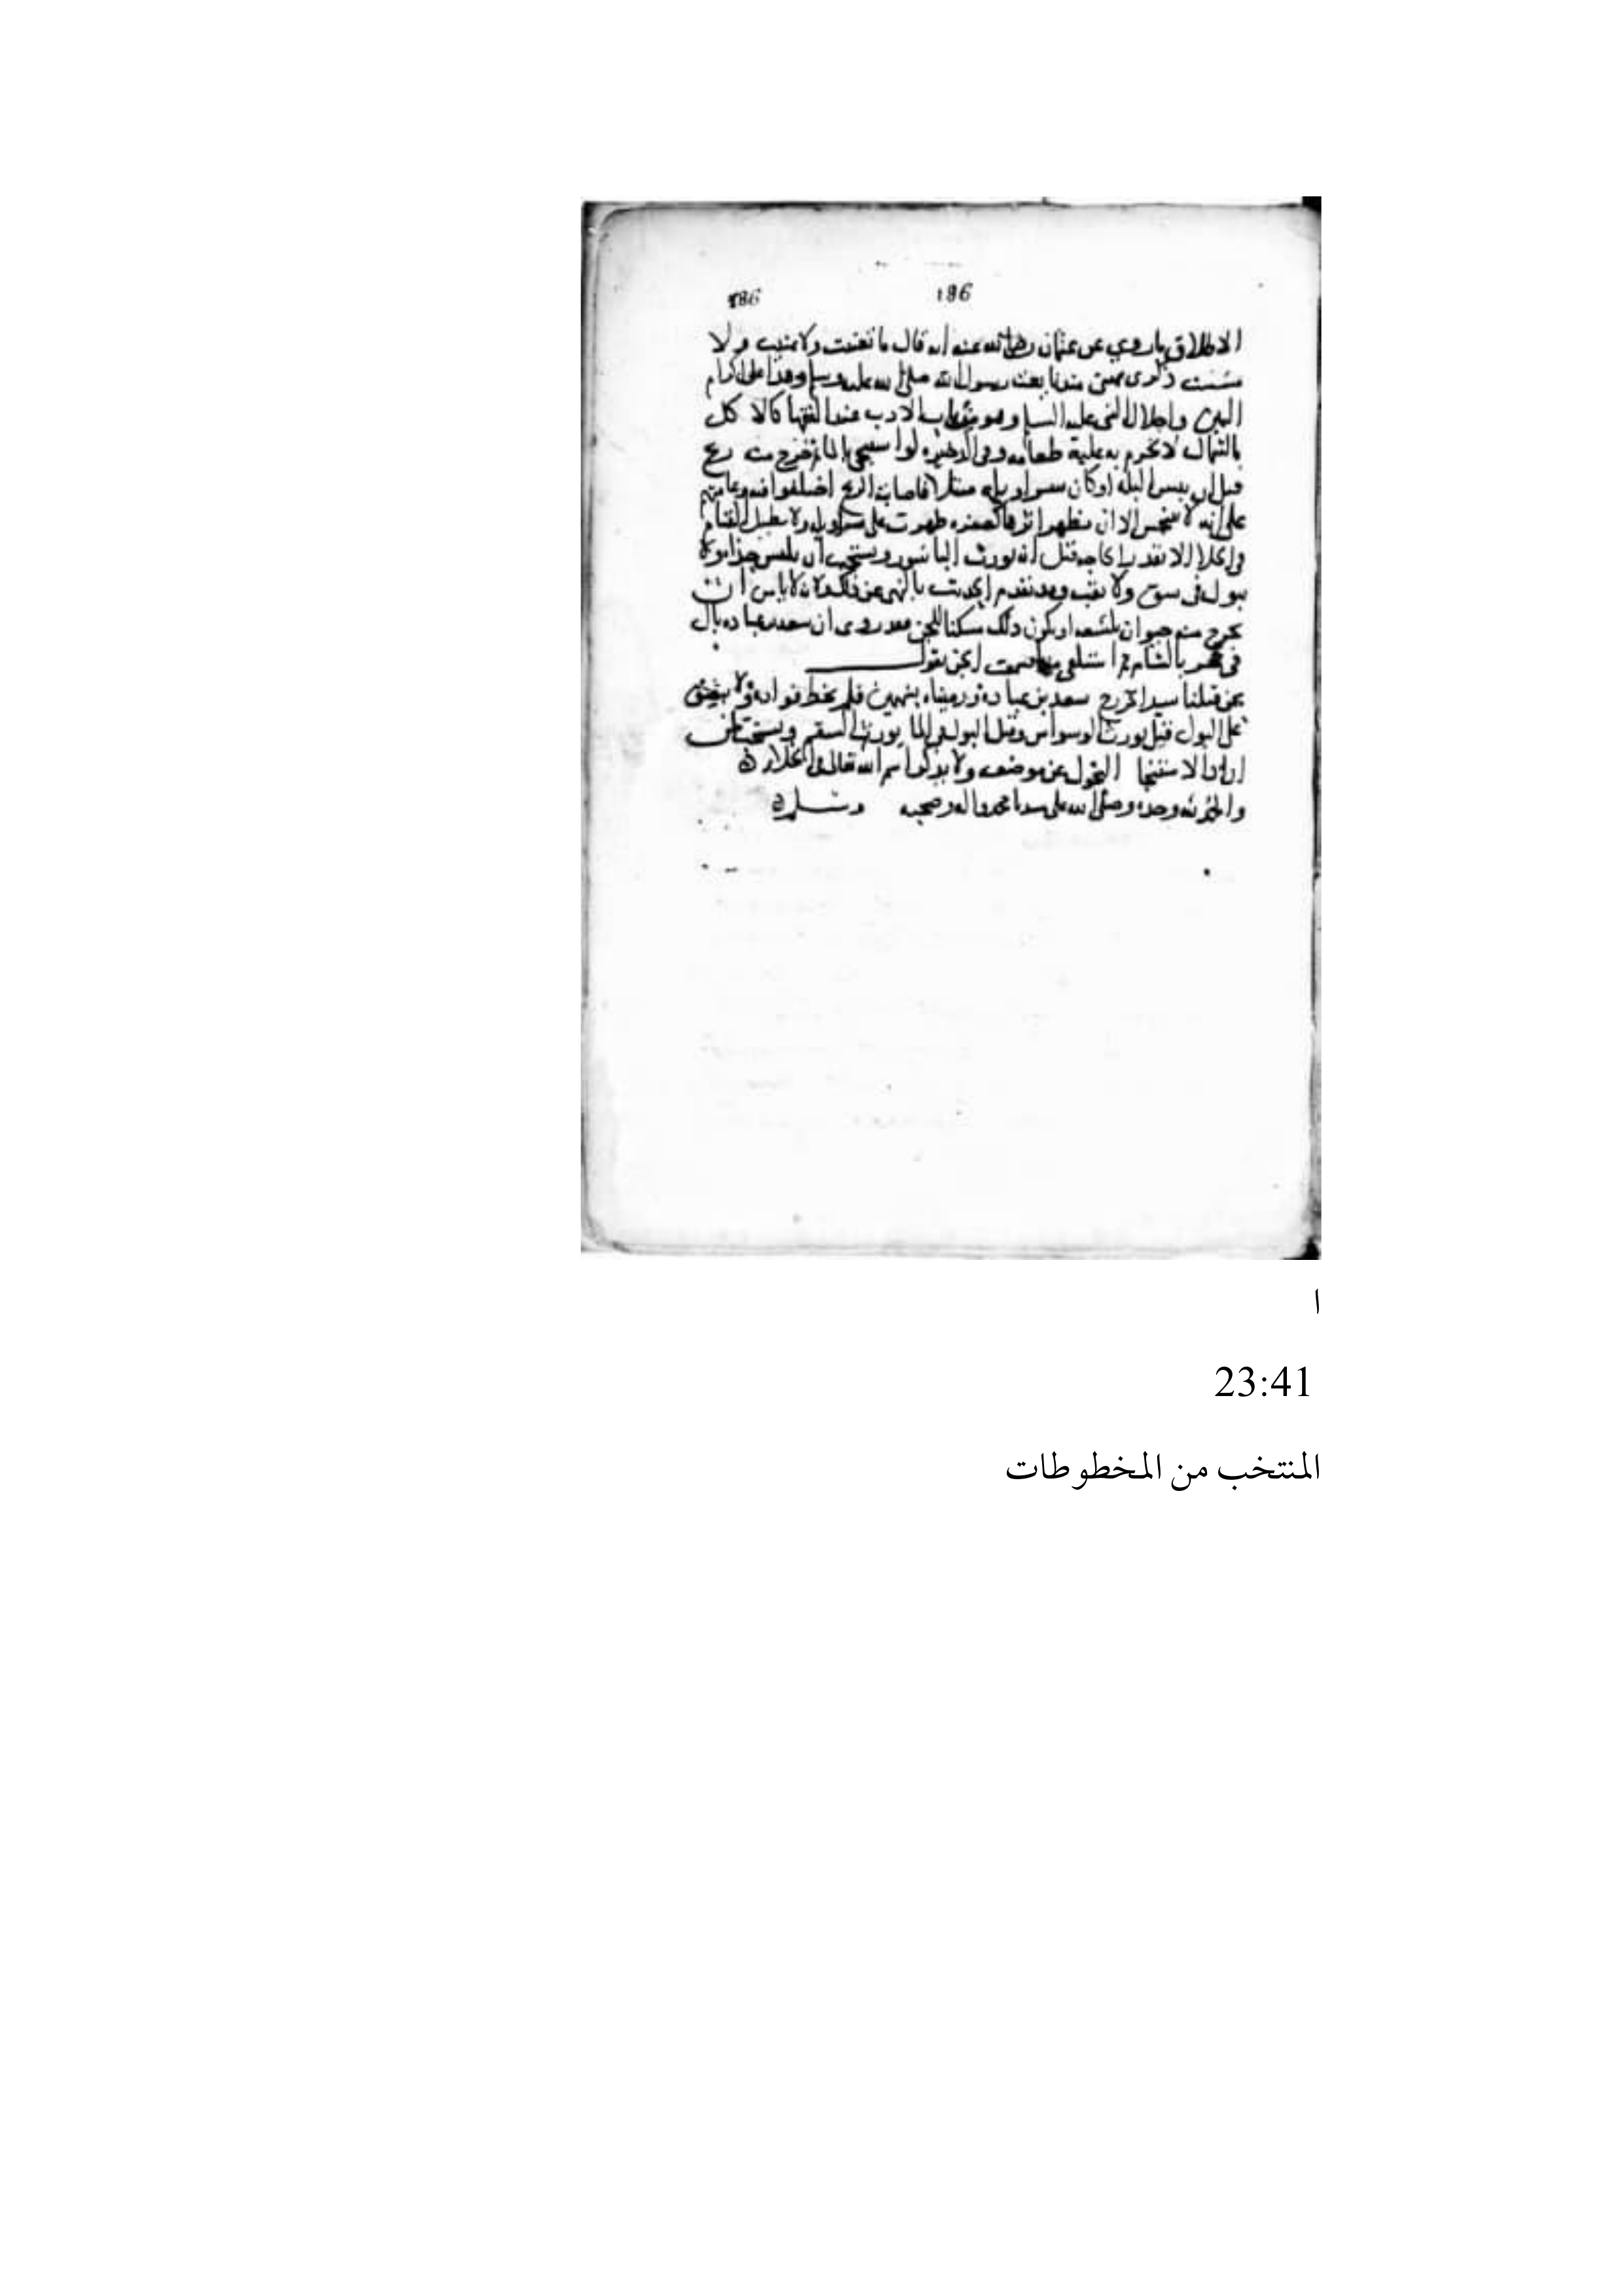 186 186
الاطلاق ما روي عن عثمان رضي الله عنه انه قال ما تغنيت ولا تمنيت ولا
مسست ذكرى بيميني منذ بايعت رسول الله صلى الله عليه وسلم وهذا على اكرام
اليمين واجلال النبي عليه السلم وهو من باب الادب عند الفقها كالاكل
بالشمال لا يحرم به عليه طعامه وفي الذخيره لو استنجى بالما ثم خرج منه ريح
قبل ان يبس البله او كان سراويله مبتلا فاصابته الريح اختلفوا فيه وعامتهم
على انه لا ينجس الا ان يظهر اثرها كصفره ظهرت على سراويل ولا يطيل القيام
في الخلا الا بقدر الحاجه فقيل انه يورث الباسور ويستحب ان يلبس حذا ولا
يبول في شق ولا ثقب وقد تقدم الحديث بالنهي عن ذلك ولانه لا يامن ان
يخرج منه حيوان يلسعه او يكون ذلك مسكنا للجن فقد روى ان سعد بن عباده بال
في جحر بالشام ثم استلقى ميتا فسمعت الجن تقول
نحن قتلنا سيد الخزرج سعد بن عباده ورميناه بسهمين فلم نخط فواده ولا
على البول فقيل يورث الوسواس وقيل البول في الما يورث السقم ويستحب لمن
اراد الاستنجا التحول عن موضعه ولا يذكر اسم الله تعالى في الخلا
والحمد لله وحده وصلى الله على سيدنا محمد واله وصحبه وسلم
ا
23:41
المنتخب من المخطوطات